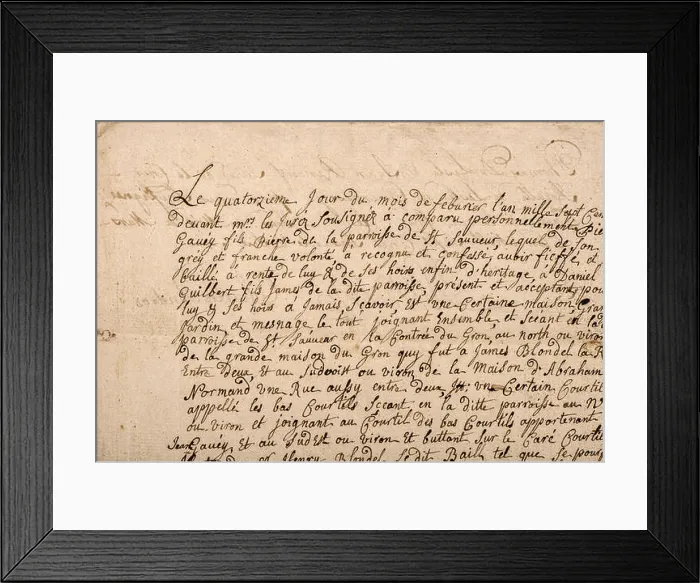 Le quatorzieme Jour du mois de feburier l'an mille Sept Cen
devant mrs les Jurez Soussignez a comparu personnellement Pie
Gavey fils Pierre de la parroisse de St Sauveur lequel de Son
grey et franche volonté à recognu et confessé avoir fieffé, et
baillé à rente de luy & de ses hoirs enfin d'heritage à Daniel
Guilbert fils James de la dite parroisse present et acceptant pou
luy & Ses hoirs à Jamais, Scavoir Est vne Certaine maison Gran
Jardin et mesnage le tout Joignant Ensemble et Sceant en lad
parroisse de St. Sauveur en la Contrée du Gron, au north ou viron
de la grande maison du Gron quy fut à James Blondel la R
Entre deux, Et au Sudvoist ou viron de la Maison d'Abraham
Normand vne Rue aussy entre deux, It: vn Certain Courtil
appellé les bas Courtils Sceant en la ditte parroisse au N
ou viron et joignant au Courtil des bas Courtils appartenant
Jean Gavey, Et au Sudest ou viron et buttant Sur le Caré Courtil
Henry Blondel Ledit Bail tel que Se pour